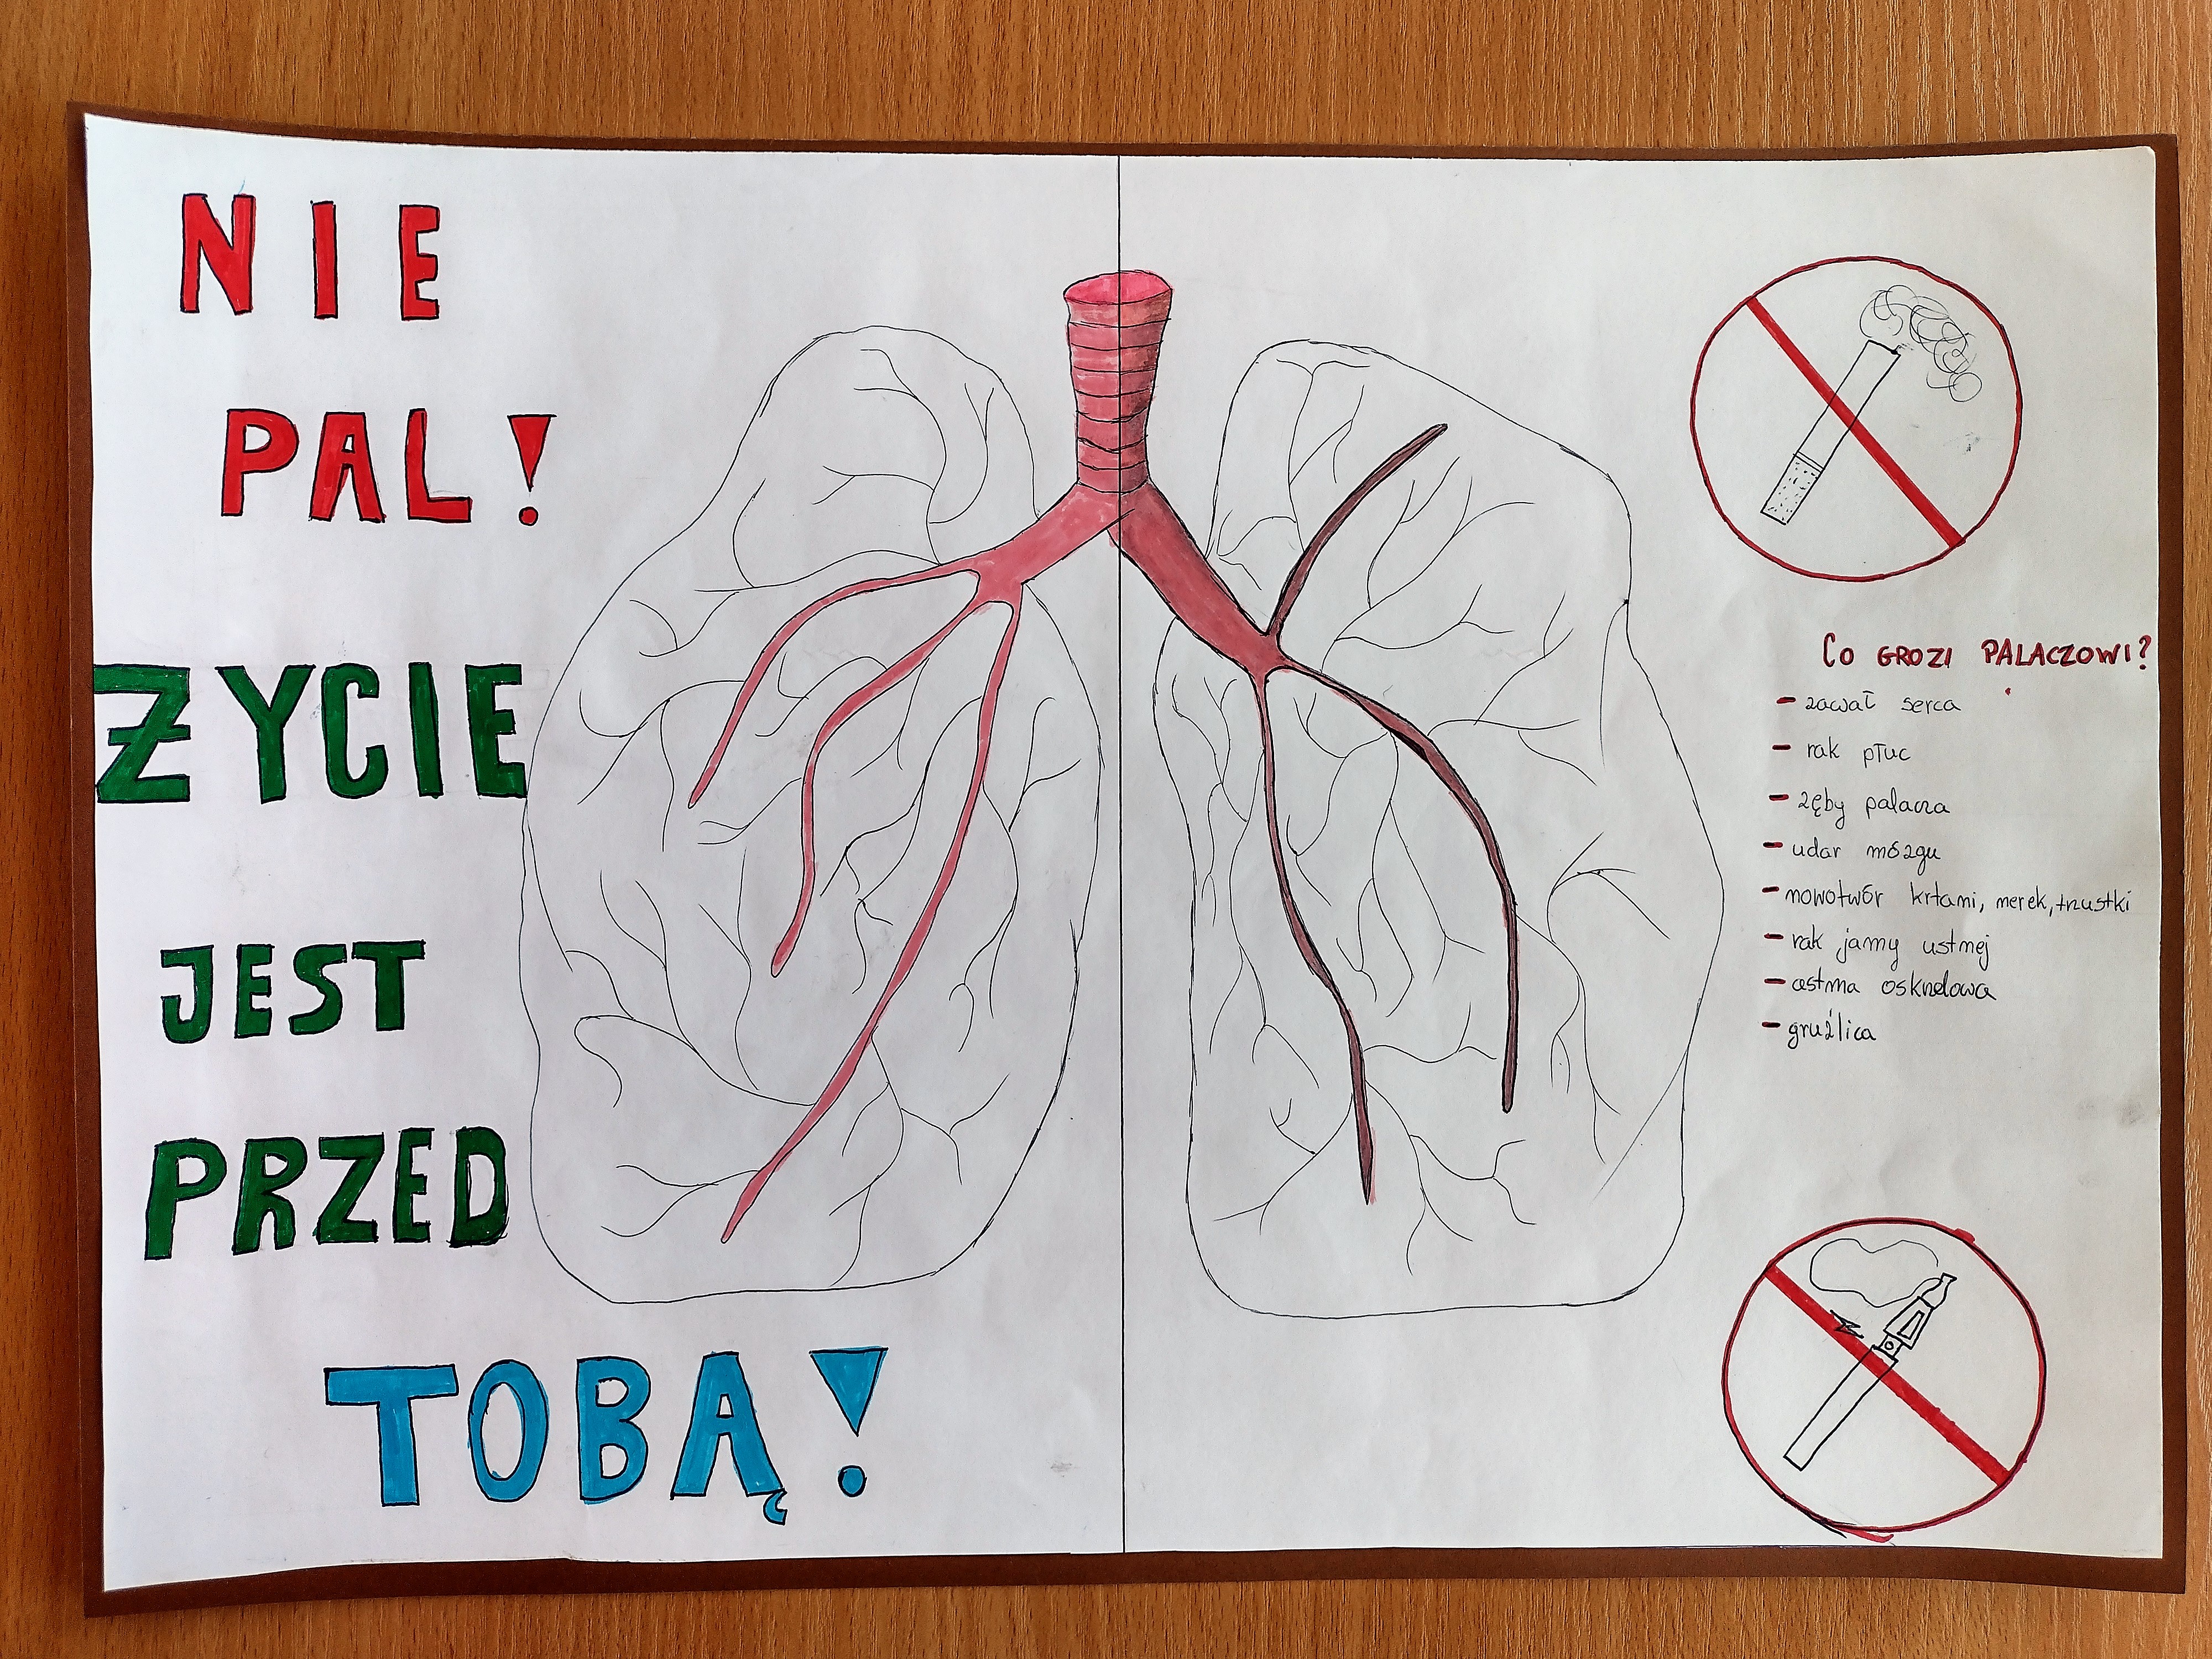 NIE
PAL!
ŻYCIE
JEST
PRZED
TOBĄ!
Co GROZI PALACZOWI?
- zawał serca
- rak płuc
- zęby palacza
- udar mózgu
- nowotwór krtani, nerek, trzustki
- rak jamy ustnej
- astma oskrzelowa
- gruźlica